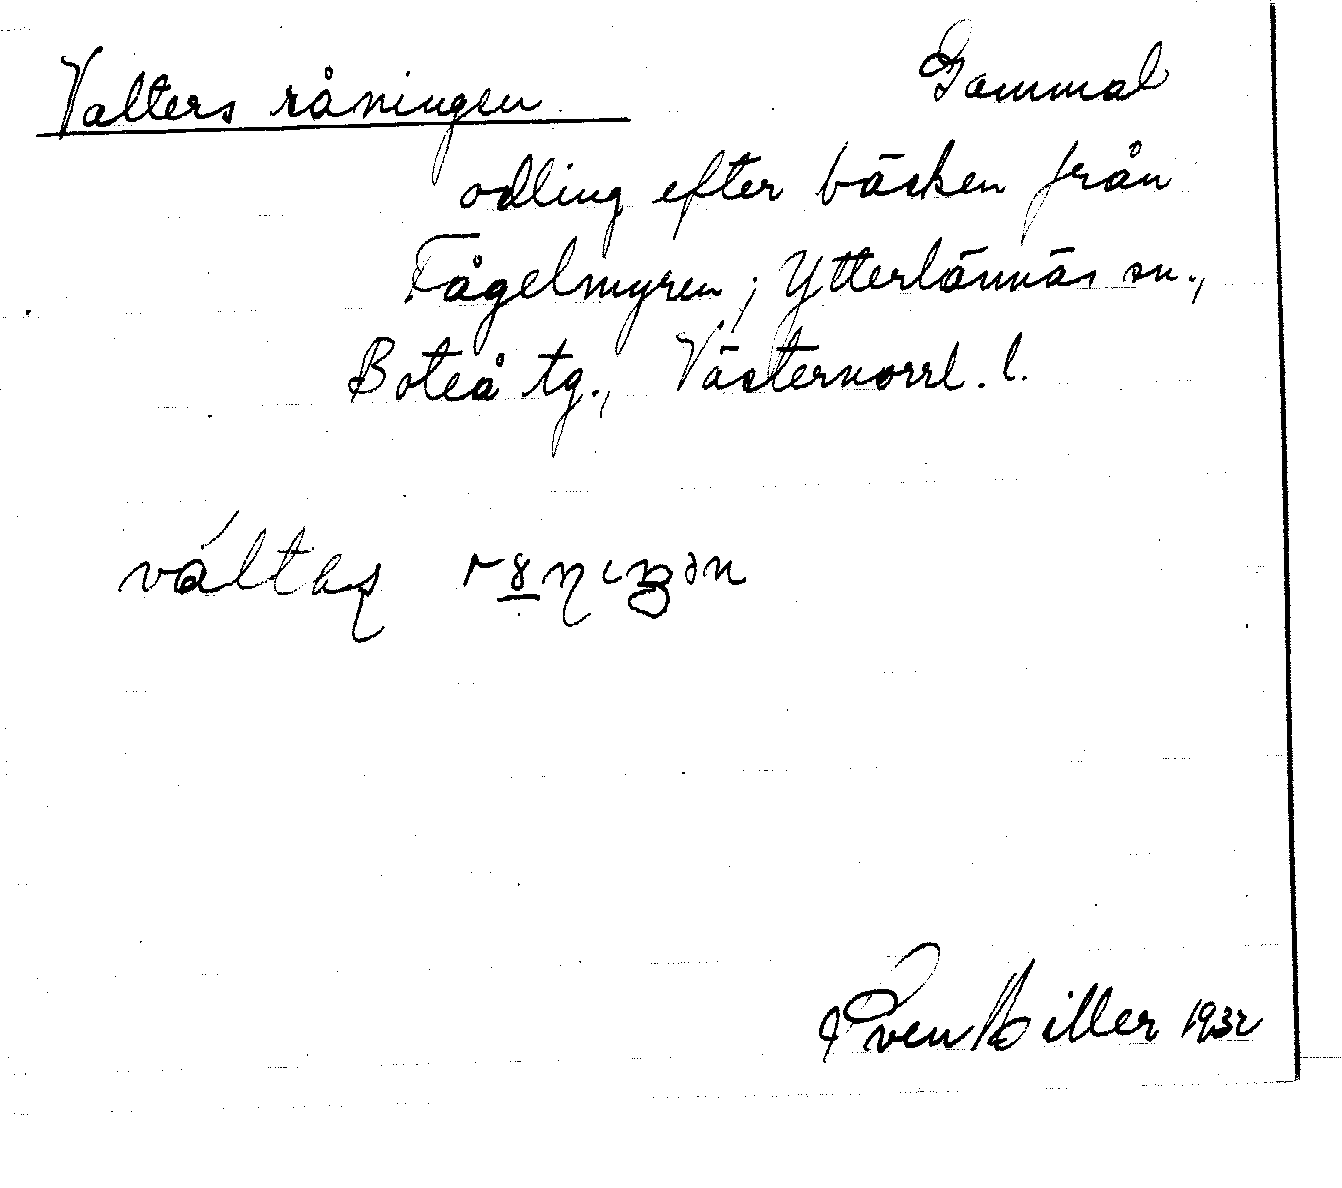 Valters råningen Gammal
odling efter bäcken från
Fågelmyren; Ytterlännäs sn.,
Boteå tg., Västernorrl. l.
Sven Hiller 1932